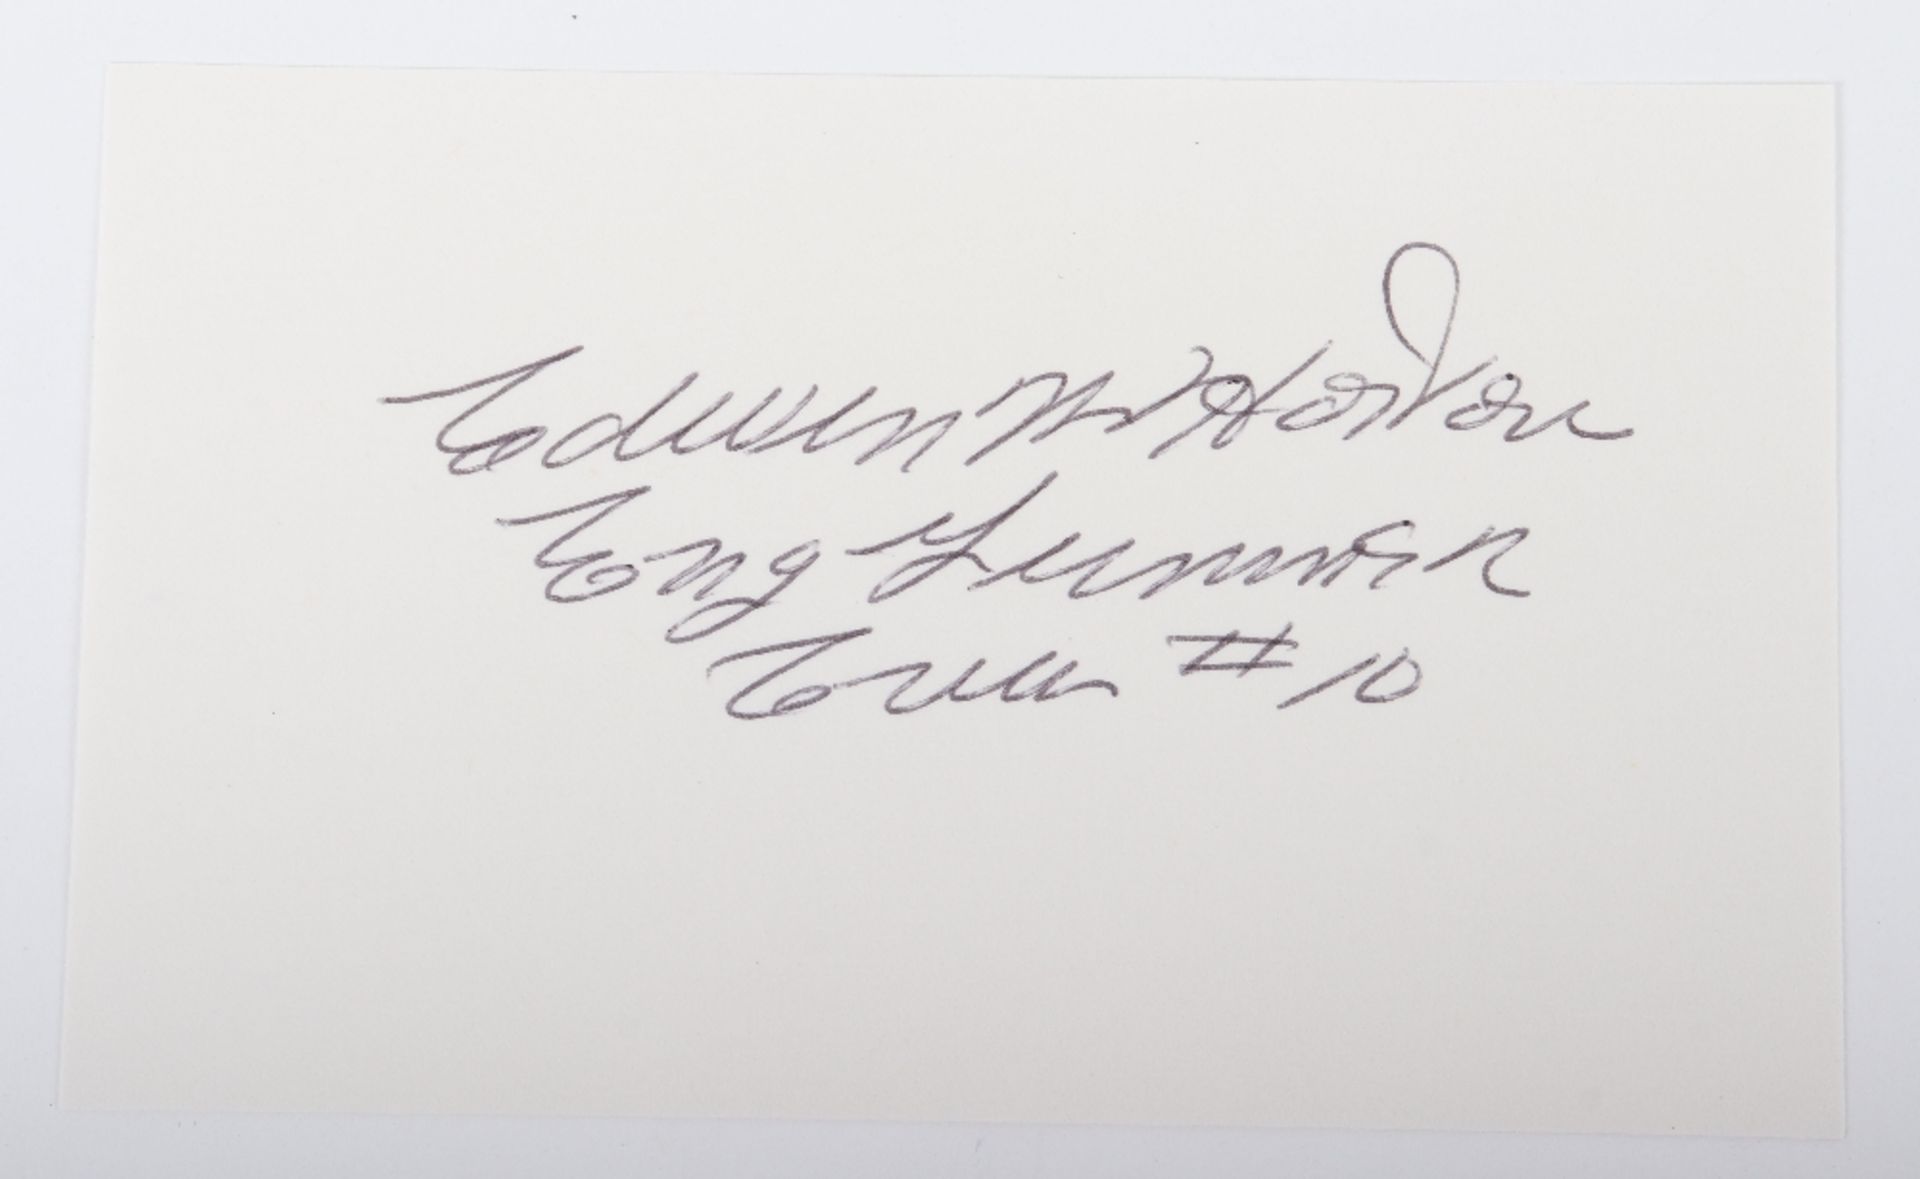 Edwin W Horton
Eng Gunner
Crew #10